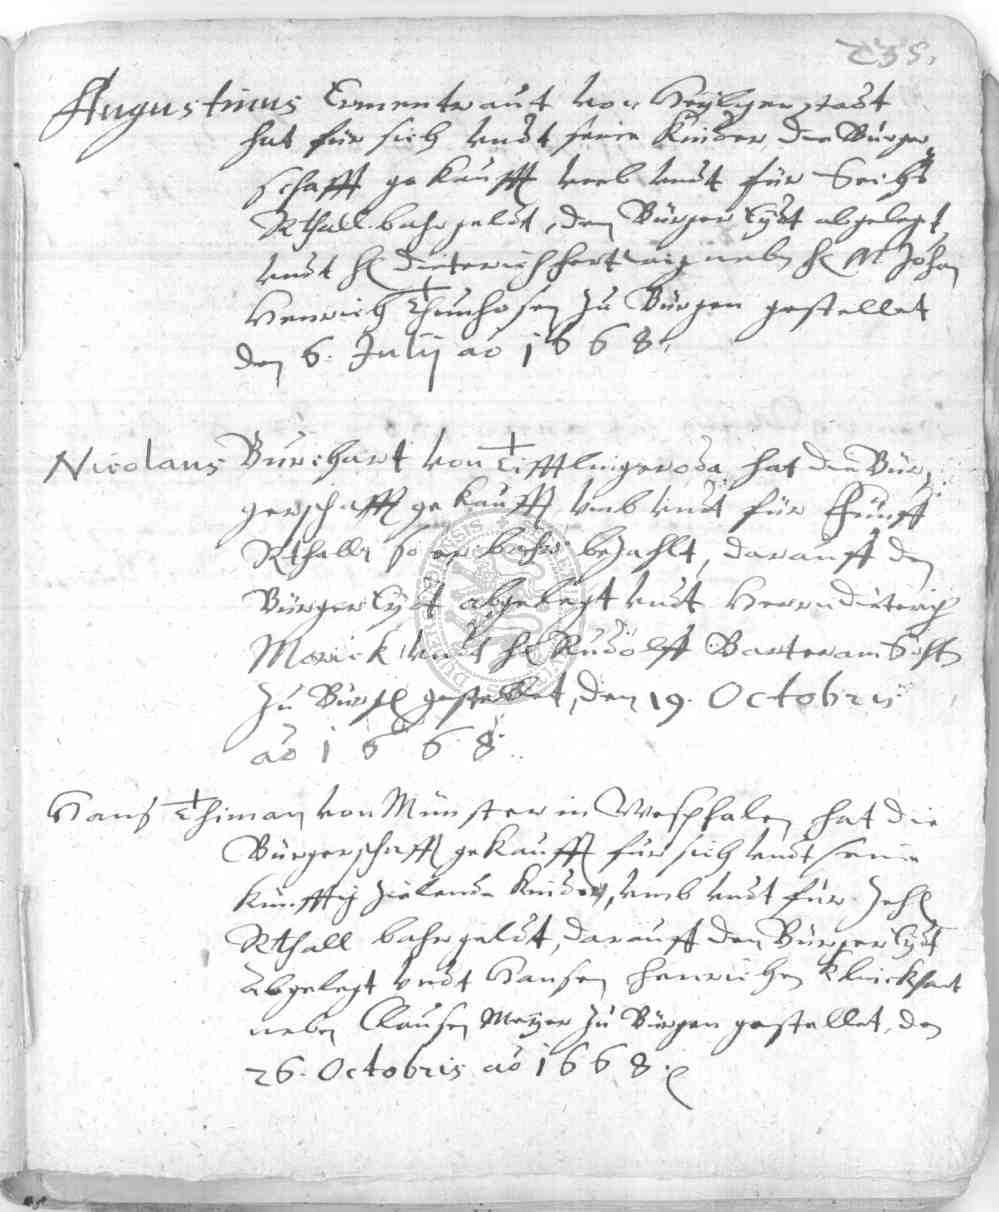 235.
Augustinus Ermentraut von Heyligenstadt
hat für sich undt seine Kinder die Bürger
schafft gekaufft umb undt für Sechs
Rthall. bahr geldt, den Bürger Eydt abgelegt
undt H Dieterich neben H M Johan
Henrich Thunhosen zu Bürgen gestellet
den 6. Julij ao 1668.
Nicolaus Burchart von Tifftlingeroda hat die Bür,
gerschafft gekaufft umb undt für Fünff
Rthaller so er bahr bezahlt, darauff den
Bürger Eydt abgelegt undt Herrn Dieterich
Morick undt H Rudolff Barteram
zu Bürgen gestellet, den 19. Octobris
ao 1668.
Hans Thiman von Münster in Wesphalen hat die
Bürgerschafft gekaufft für sich undt seine
künfftig zielende Kinder, umb undt für Zehen
Rthall bahr geldt, darauff den Bürger Eydt
abgelegt undt Hansen Henrichen Klinckhart
neben Clausen Meyer zu Bürgen gestellet, den
26. Octobris ao 1668.